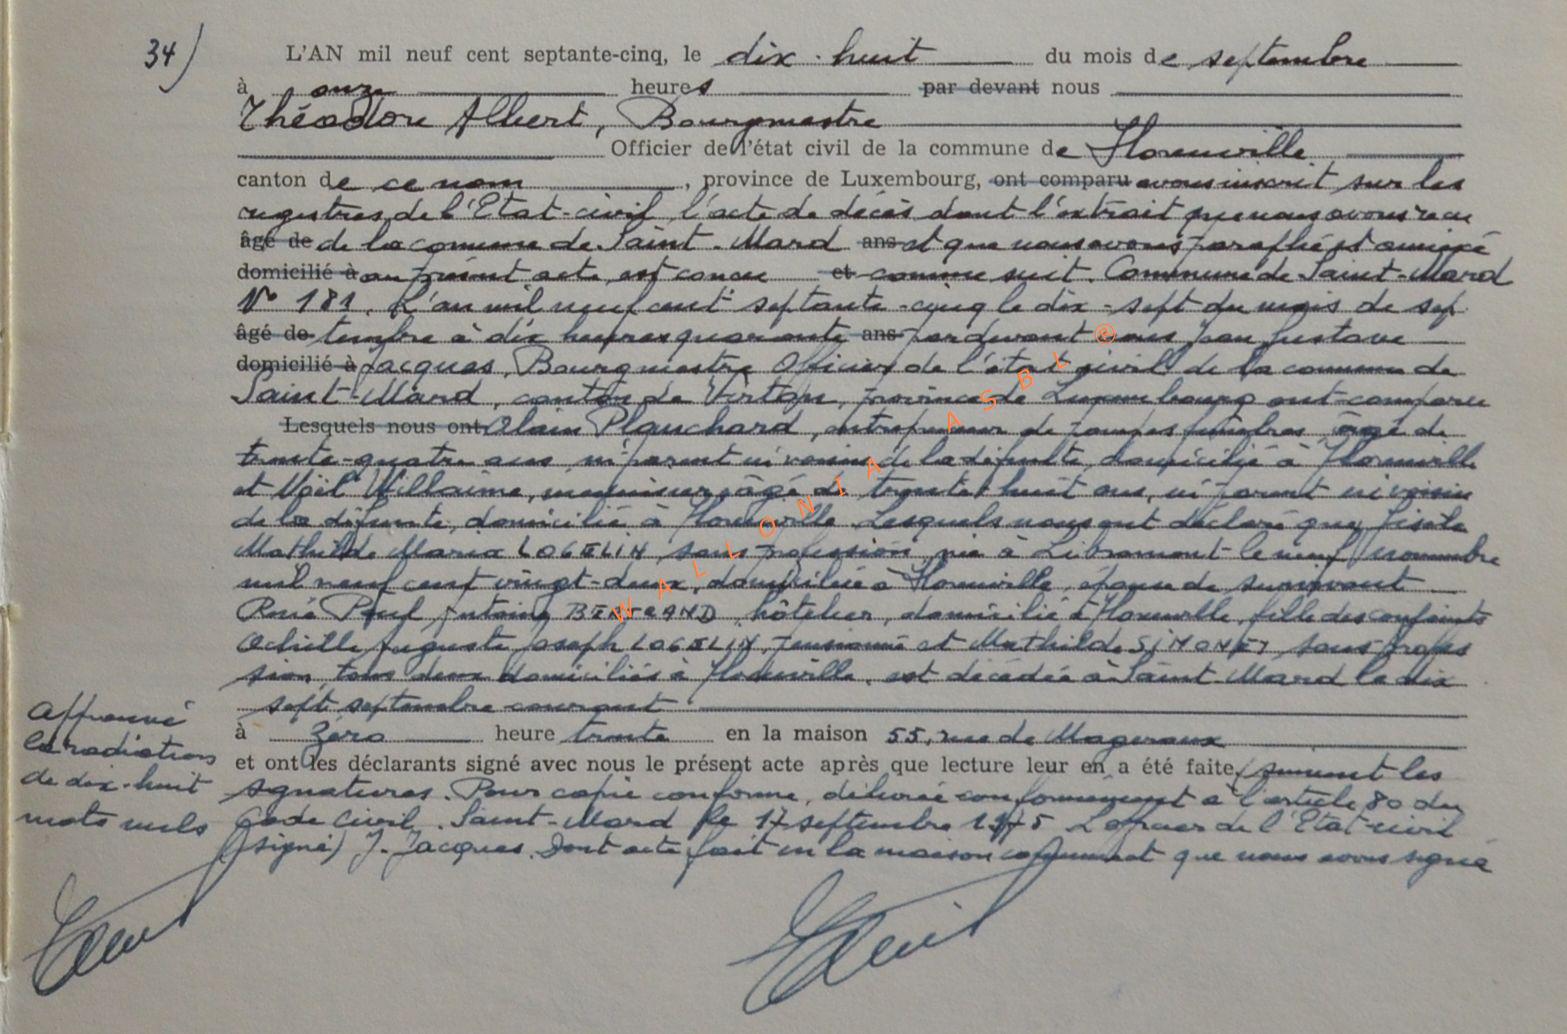 34)
L'AN mil neuf cent septante-cinq, le dix-huit du mois de septembre
à onze heures par devant nous
Théodore Albert, Bourgmestre
Officier de l'état civil de la commune de Florenville
canton de ce nom, province de Luxembourg, ont comparu avons inscrit sur les
registres de l'Etat-civil l'acte de décès dont l'extrait que nous avons reçu
âgé de de la commune de Saint-Mard ans et que nous avons paraphé et annexé
domicilié à au présent acte, est conçu et comme suit. Commune de Saint-Mard
N° 181. L'an mil neuf cent septante-cinq le dix-sept du mois de sep
âgé de tembre à dix heures quarante ans pardevant nous Jean Gustave
domicilié à Jacques, Bourgmestre Officier de l'état civil de la commune de
Saint-Mard, canton de Virton, province de Luxembourg ont comparu
Lesquels nous ont Alain Planchard, entrepreneur de pompes funèbres âgé de
trente-quatre ans, ni parent ni voisin de la défunte, domicilié à Florenville
et Noël Willaime, menuisier, âgé de trente huit ans, ni parent ni voisin
de la défunte, domicilié à Florenville. Lesquels nous ont déclaré que Gisèle
Mathilde Maria LOGELIN sans profession, née à Libramont le neuf novembre
mil neuf cent vingt-deux, domiciliée à Florenville, épouse de survivant
René Paul Antoine BERTRAND, hôtelier, domicilié à Florenville, fille des conjoints
Achille Auguste Joseph LOGELIN, pensionné et Mathilde SIMONET sans profes
sion, tous deux domiciliés à Florenville, est décédée à Saint-Mard le dix
sept septembre courant
à zéro heure trente en la maison 55, rue de Mageroux
et ont les déclarants signé avec nous le présent acte après que lecture leur en a été faite, (suivent les
signatures. Pour copie conforme, délivrée conformément à l'article 80 du
Code Civil. Saint-Mard le 17 septembre 1975 L'officier de l'Etat-civil
(signé) J. Jacques. Dont acte fait en la maison communale et que nous avons signé
approuvé
la radiation
de dix-huit
mots nuls
WALLONIA ASBL ®